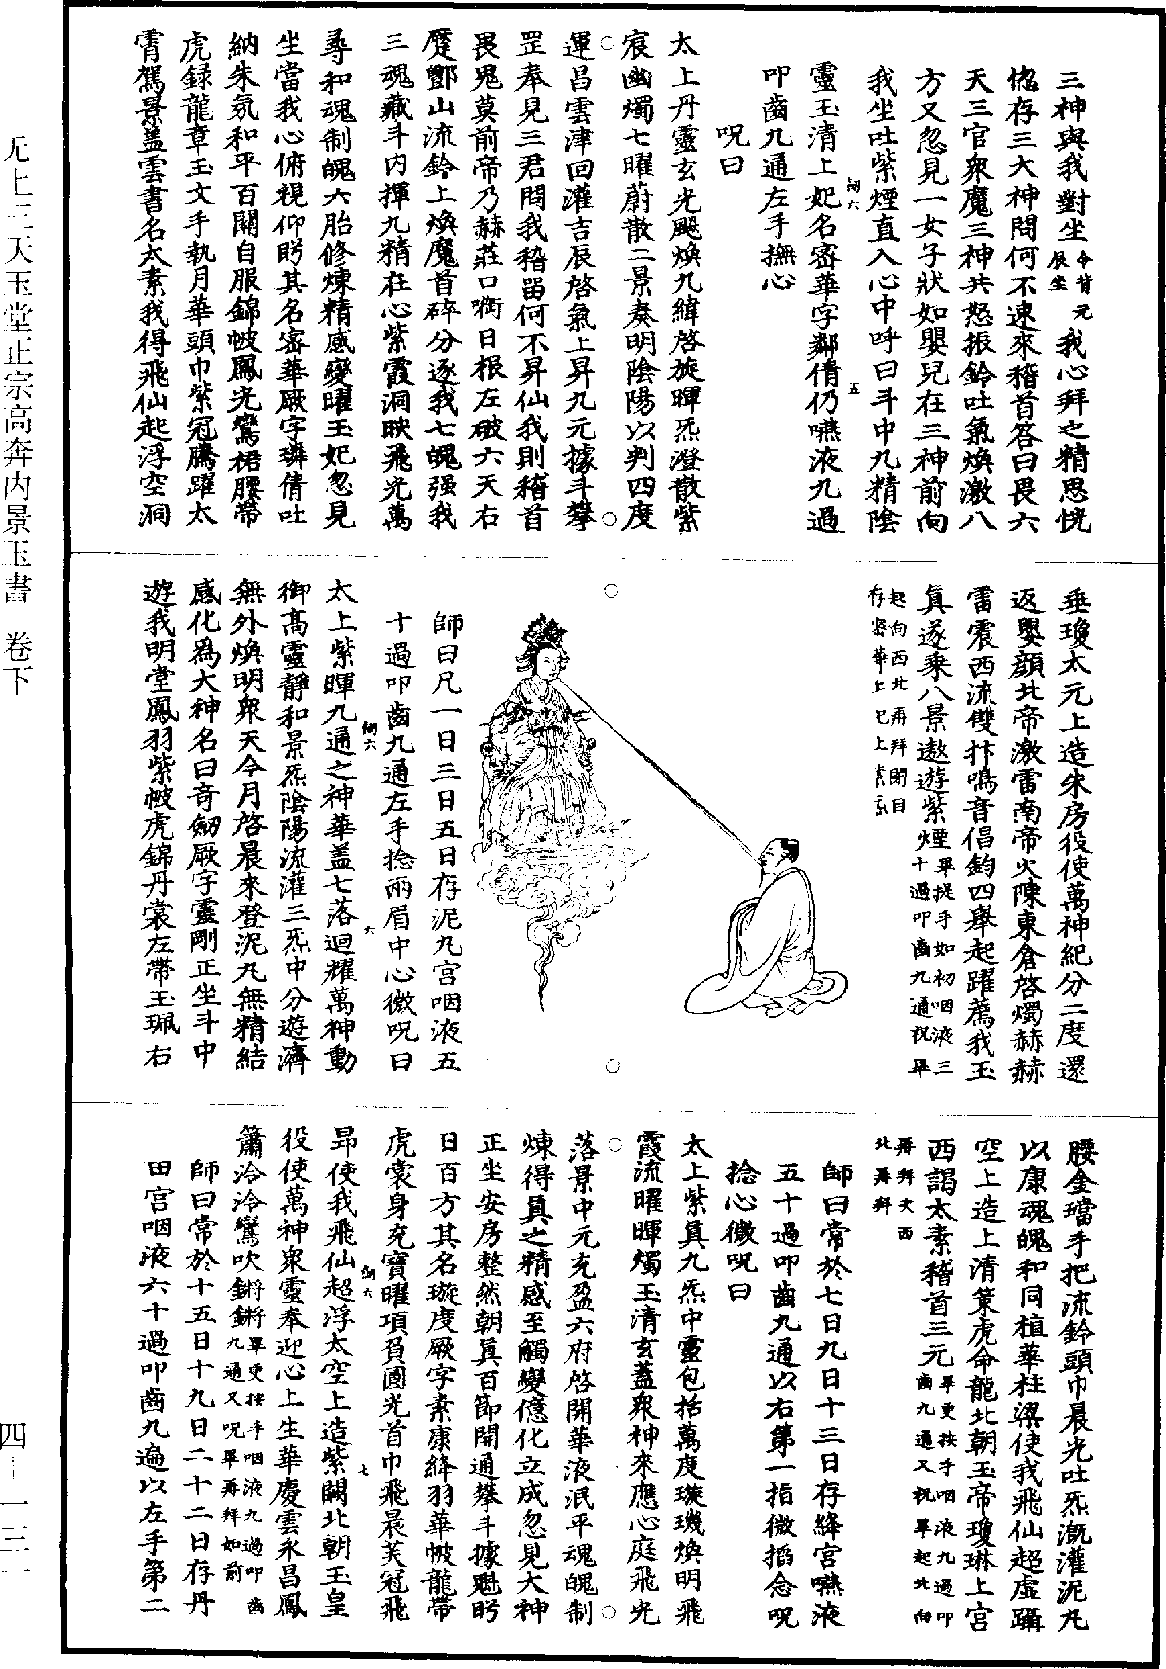 三神與我對坐令皆元辰坐我心拜之精思恍
惚存三大神問何不速來稽首答曰畏六
天三官衆魔三神共怒振鈴吐氣煥激八
方又忽見一女子狀如嬰兒在三神前向
我坐吐紫煙直入心中呼曰斗中九精陰
靈玉清上妃名密華字鄰倩仍嚥液九過
叩齒九通左手撫心
呪曰
太上丹靈玄光飈煥九緯啓旋暉炁澄散紫
宸幽燭七曜蔚散二景奏明陰陽以判四度
運昌雲津回灌吉辰啓氣上昇九元據斗攀
罡奉見三君問我稽留何不昇仙我則稽首
畏鬼莫前帝乃赫莊口嘯日根左破六天右
蹙酆山流鈴上煥魔首碎分逐我七魄强我
三魂藏斗內揮九精在心紫霞洞映飛光萬
尋和魂制魄六胎修煉精感變曜玉妃忽見
坐當我心俯視仰眄其名密華厥字璘倩吐
納朱氛和平百關自服錦帔鳳光鸞裙腰帶
虎録龍章玉文手執月華頭巾紫冠騰躍太
霄駕景盖雲書名太素我得飛仙起浮空洞
垂瓊太元上造朱房役使萬神紀分二度還
返嬰顔北帝激雷南帝火陳東倉啓燭赫赫
雷震西流雙抃鳴音倡鈞四舉起躍薦我玉
眞遂乘八景遨遊紫煙畢提手如初咽液三十過叩齒九通祝畢
起向西北再拜閉目存密華上妃上素京
師曰凡一日三日五日存泥丸宮咽液五
十過叩齒九通左手捻兩眉中心微呪曰
太上紫暉九通之神華盖七落迴耀萬神動
御高靈靜和景炁陰陽流灌三炁中分遊濟
無外煥明衆天今月啓晨來登泥丸無精結
感化爲大神名曰奇劒厥字靈剛正坐斗中
遊我明堂鳳羽紫帔虎錦丹裳左帶玉珮右
腰金璫手把流鈴頭巾晨光吐炁漑灌泥丸
以康魂魄和同植華柱梁使我飛仙超虛躡
空上造上清策虎命龍北朝玉帝瓊琳上宮
西謁太素稽首三元畢更按手咽液九過叩齒九通又祝畢起北向
再拜次西北再拜
師曰常於七日九日十三日存絳宮嚥液
五十過叩齒九通以右第一指微搯念呪
捻心微呪曰
太上紫眞九炁中靈包括萬度璇璣煥明飛
霞流曜暉燭玉清玄蓋衆神來應心庭飛光
落景中元充盈六府啓開華液泯平魂魄制
煉得眞之精感至觸變億化立成忽見大神
正坐安房整然朝眞百節開通攀斗據魁眄
日百方其名璇度厥字素康絳羽華帔龍帶
虎裳身充寶曜項負圓光首巾飛晨芙冠飛
昻使我飛仙超浮太空上造紫闕北朝玉皇
役使萬神衆靈奉迎心上生華慶雲永昌鳳
簫泠泠鸞吹鏘鏘畢更按手咽液九過叩齒九通又呪畢再拜如前
師曰常於十五日十九日二十二日存丹
田宮咽液六十過叩齒九遍以左手第二
无上三天玉堂正宗高奔内景玉書　卷下
四－一三一